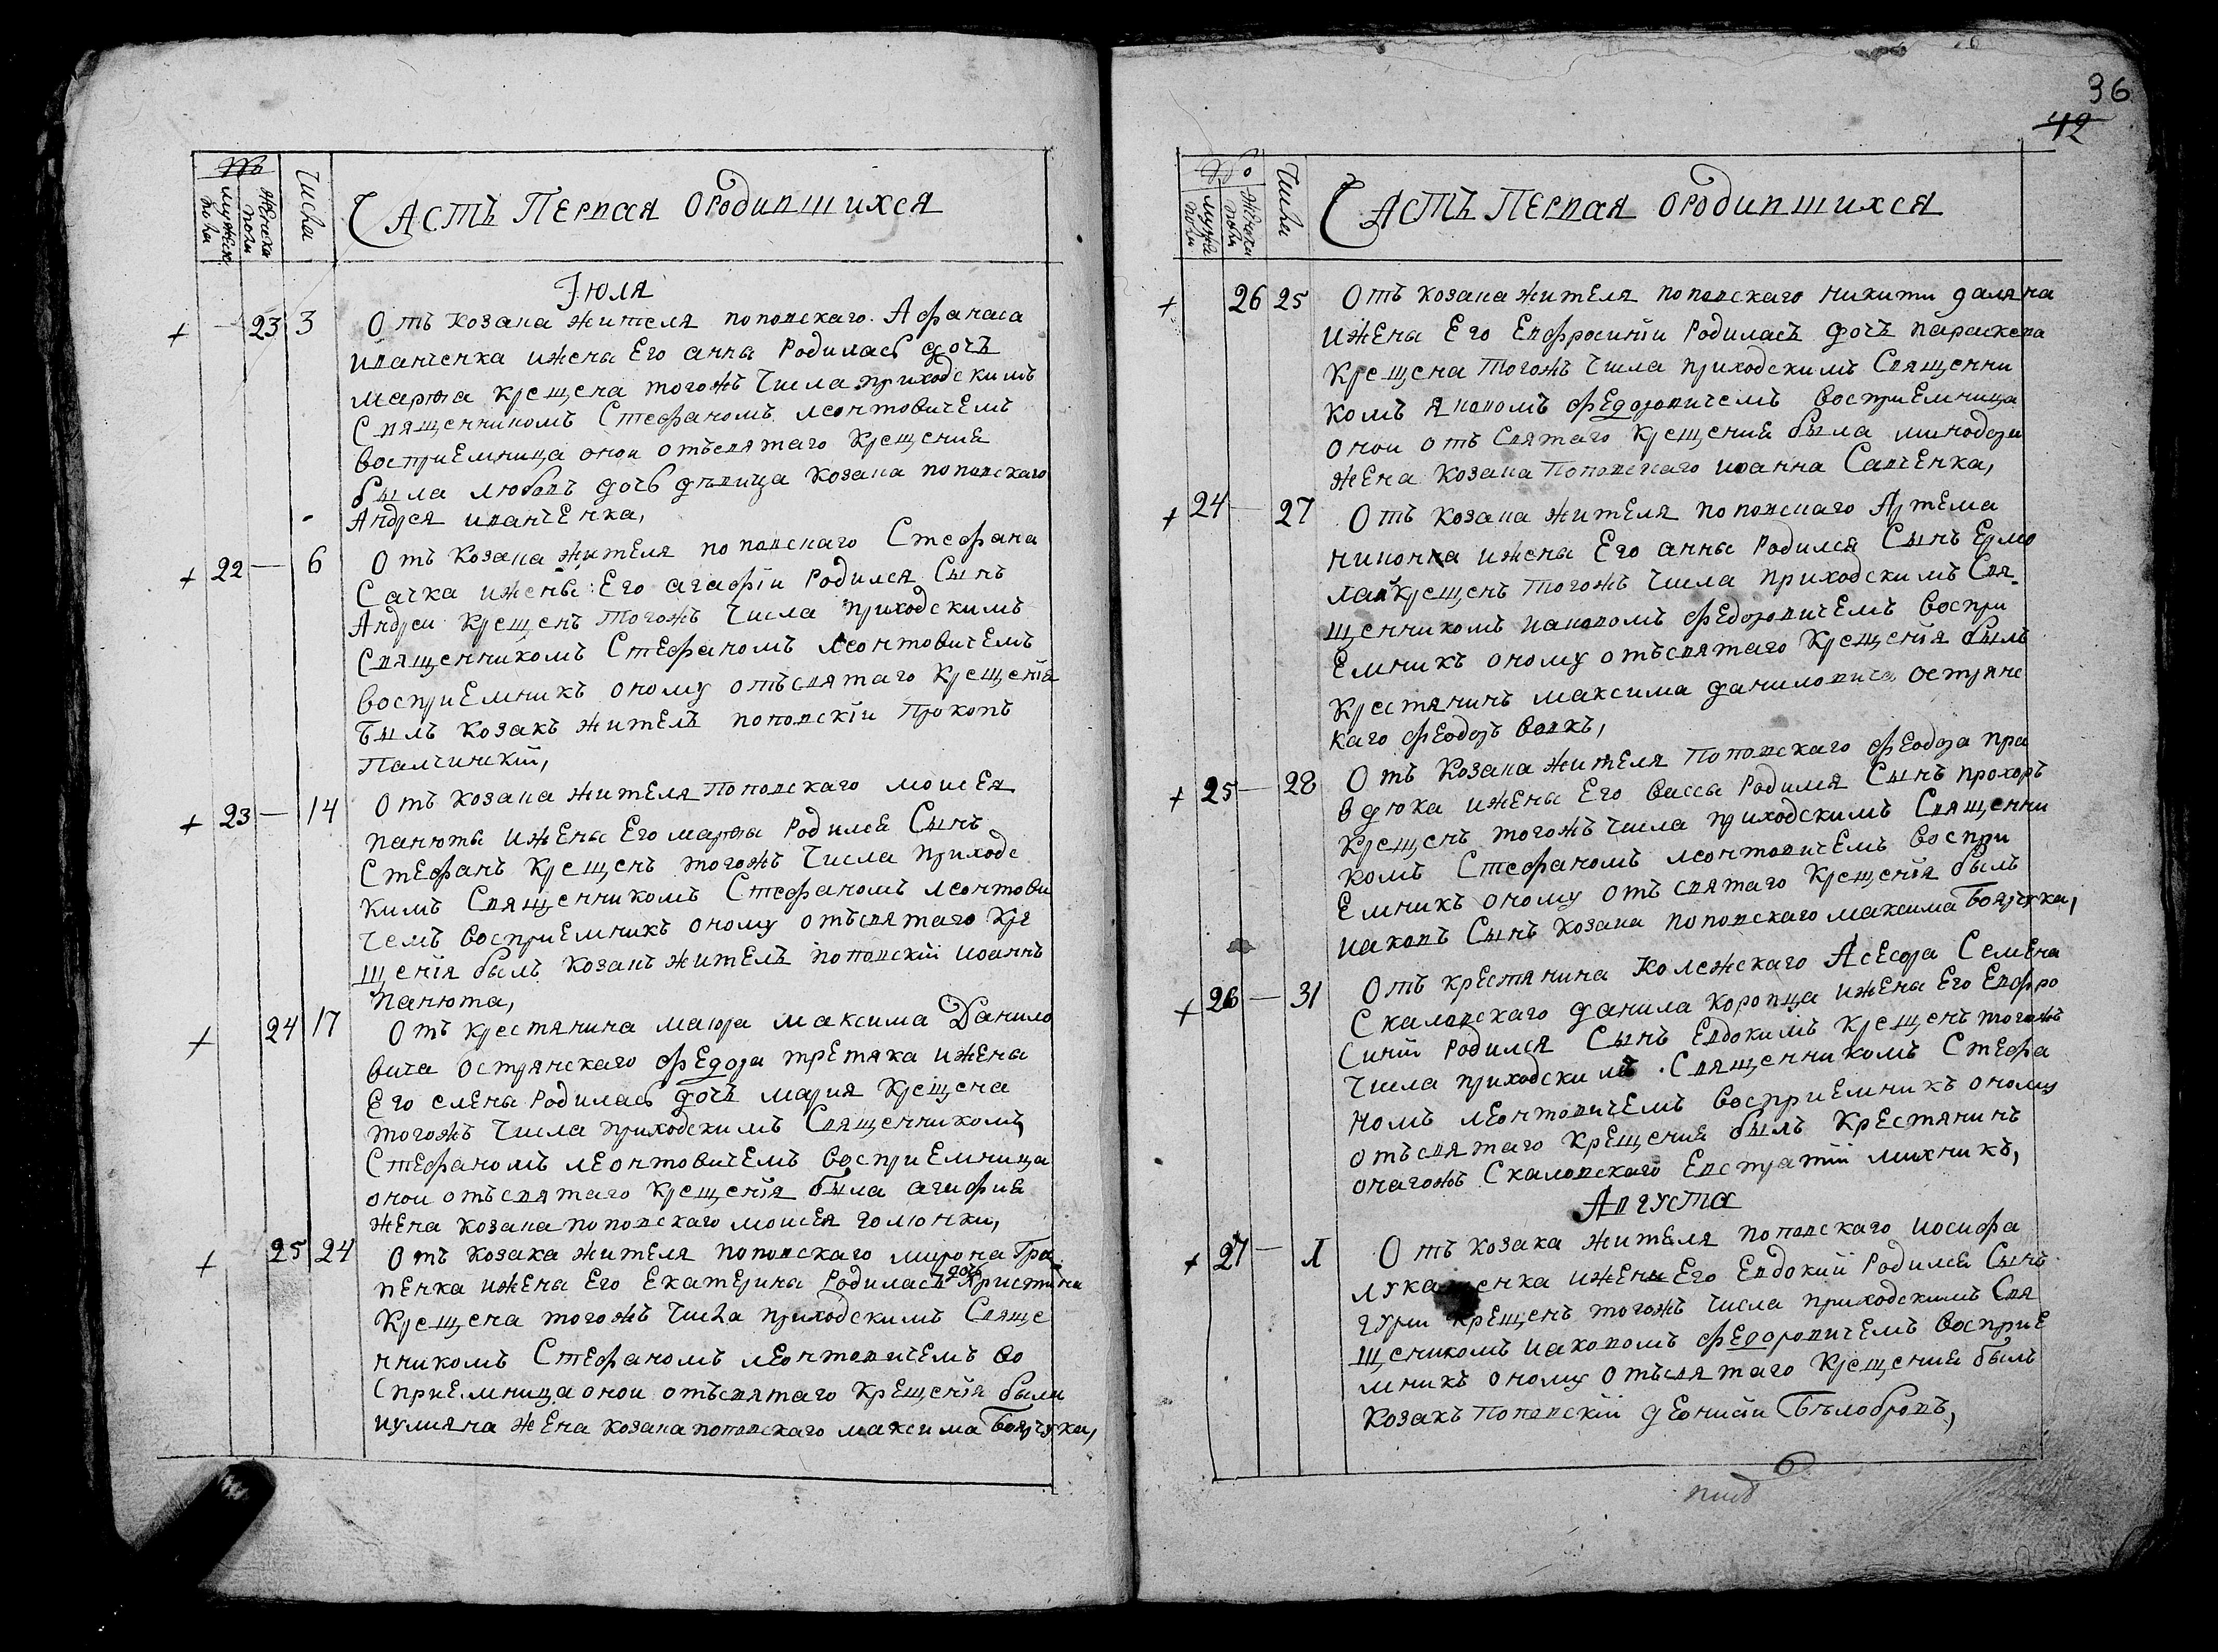 36
42
№
мужеск. пола
женска пола
Числа
Часть Первая О родившихся
Іюля
+ — 23 3 Отъ козака жителя поповскаго Афанаса
иванченка и жены Его анны Родилась дочь
марѳа крещена тогожъ числа приходскимъ
Священникомъ Стефаномъ леонтовичемъ
восприемница онои отъ святаго крещения
была любовь дочь дѣвица козака поповскаго
Андрея иванченка,
+ 22 — 6 Отъ козака жителя поповскаго Стефана
Сачка и жены Его агафіи Родился Сынъ
Андреи крещенъ тогожъ числа приходскимъ
Священникомъ Стефаномъ леонтовичемъ
восприемникъ оному отъ святаго крещенія
Былъ козакъ житель поповскіи Прокопъ
Палчинскій,
+ 23 — 14 Отъ козака жителя Поповскаго моисея
панюты и жены Его марѳы Родился Сынъ
Стефанъ крещенъ тогожъ числа приходс
кимъ Священникомъ Стефаномъ леонтови
чемъ восприемникъ оному отъ святаго кре
щенія былъ козакъ житель поповскій иоаннъ
панюта,
+ 24 17 Отъ крестянина маиора максима Данило
вича острянскаго федора третяка и жены
Его елены Родилась дочь мария крещена
тогожъ числа приходскимъ Священникомъ
Стефаномъ леонтовичемъ восприемница
онои отъ святаго крещенія была агафия
жена козака поповскаго моисея голюнки,
+ 25 24 Отъ козака жителя поповскаго мирона Гри
пенка и жены Его Екатерины Родилась дочь Христина
Крещена тогожъ числа приходскимъ Свяще
нникомъ Стефаномъ леонтовичемъ во
сприемница онои отъ святаго крещенія была
иулияна жена козака поповскаго максима Боярчука,
№
мужска пола
женска пола
Числа
Часть Первая О родившихся
+ 26 25 Отъ козака жителя поповскаго никиты галяна
и жены Его Евфросиніи Родилась дочь параскева
крещена тогожъ числа приходскимъ Священни
комъ Яковомъ федоровичемъ восприемница
онои отъ Святаго крещения была минодора
жена козака Поповскаго иоанна Савченка,
+ 24 — 27 Отъ козака жителя поповскаго Артема
нипочка и жены Его анны Родился Сынъ Ермо
лай крещенъ тогожъ числа приходскимъ Свя
щенникомъ иаковомъ федоровичемъ воспри
емникъ оному отъ святаго крещенія былъ
крестянинъ максима даниловича острянс
каго феодоръ вовкъ,
+ 25 — 28 Отъ козака жителя Поповскаго феодора пра
вдюка и жены Его вассы Родился Сынъ прохоръ
крещенъ тогожъ числа приходскимъ Священни
комъ Стефаномъ леонтовичемъ воспри
емникъ оному отъ святаго крещенія былъ
иаковъ Сынъ козака поповскаго максима Боярчука,
+ 26 — 31 Отъ крестянина колежскаго Асесора Семена
Скаловскаго данила коропца и жены Его Евфро
синій Родился Сынъ Евдокимъ крещенъ тогожъ
числа приходскимъ Священникомъ Стефа
номъ леонтовичемъ восприемникъ оному
отъ святаго крещения былъ крестянинъ
онагожъ Скаловскаго Евстратій михникъ,
Августа
+ 27 — 1 Отъ козака жителя поповскаго иосифа
лука енка и жены Его Евдокий Родился Сынъ
гурии крещенъ тогожъ числа приходскимъ Свя
щеникомъ иаковомъ федоровичемъ восприе
мникъ оному отъ святаго крещения былъ
козакъ Поповскій деонисіи Бѣлобровъ,